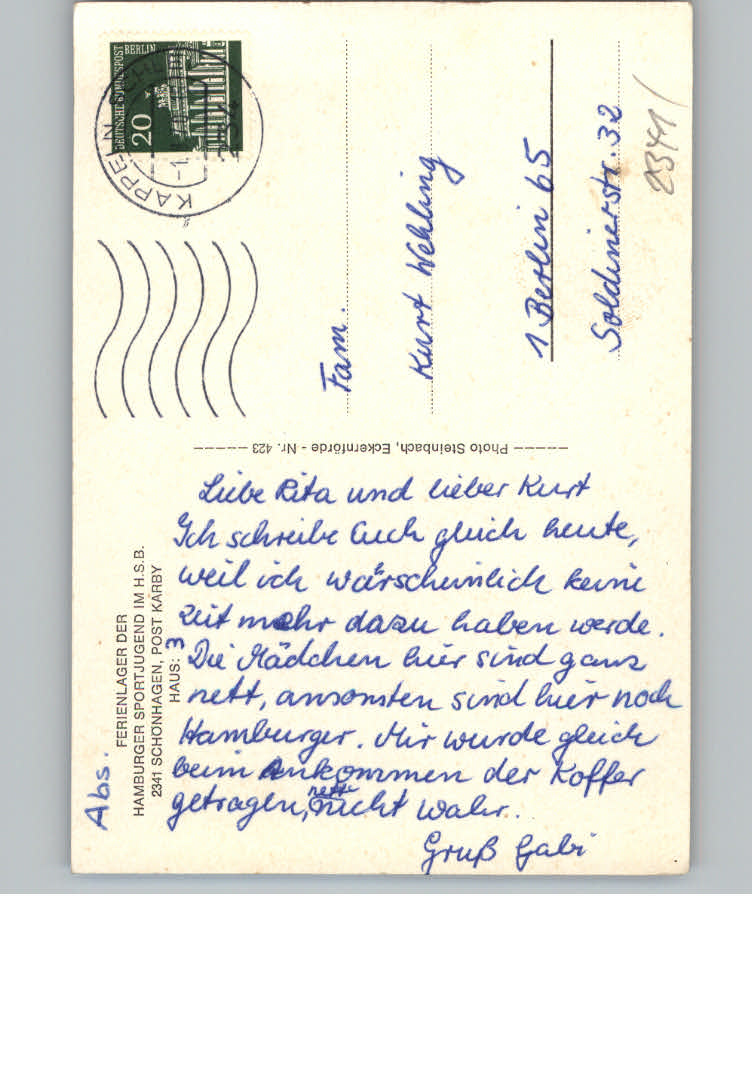 Abs.
FERIENLAGER DER
HAMBURGER SPORTJUGEND IM H.S.B.
2341 SCHÖNHAGEN, POST KARBY
HAUS: 3
Liebe Rita und lieber Kurt
Ich schreibe Euch gleich heute,
weil ich wärscheinlich keine
Zeit mehr dazu haben werde.
Die Mädchen hier sind ganz
nett, ansonsten sind hier noch
Hamburger. Mir wurde gleich
beim Ankommen der Koffer
getragen, nette nicht wahr.
Gruß Gabi
Photo Steinbach, Eckernförde - Nr. 423
DEUTSCHE BUNDESPOST BERLIN
20
KAPPELN
Fam.
Kurt Wehling
1 Berlin 65
Soldinerstr. 32
2341